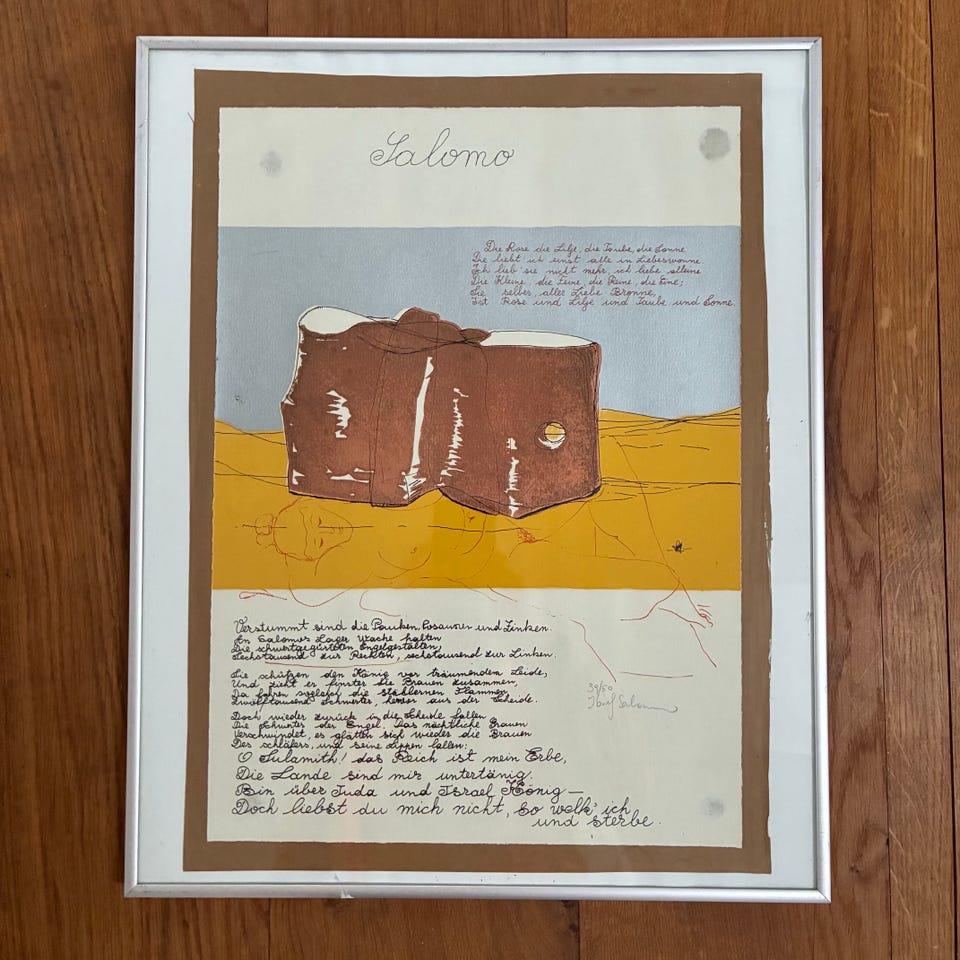 Salomo
Die Rose die Lilje, die Taube, die Sonne
Die liebt ich einst alle in Liebeswonne.
Ich lieb sie nicht mehr, ich liebe alleine
Die Kleine, die Feine, die Reine, die Eine;
Sie selber, aller Liebe Bronne,
Ist Rose und Lilje und Taube und Sonne.
Verstummt sind die Pauken, Posaunen und Zinken.
An Salomos Lager Wache halten
Die schwertgegürteten Engelgestalten,
Sechstausend zur Rechten, sechstausend zur Linken.
Sie schützen den König vor träumendem Leide,
Und zieht er finster die Brauen zusammen,
Da fahren sogleich die stählernen Flammen,
Zwölftausend Schwerter, hervor aus der Scheide.
Doch wieder zurück in die Scheide fallen
Die Schwerter der Engel. Das nächtliche Grauen
Verschwindet, es glätten sich wieder die Brauen
Des Schläfers, und seine Lippen lallen:
O Sulamith! das Reich ist mein Erbe,
Die Lande sind mir untertänig.
Bin über Juda und Israel König—
Doch liebst du mich nicht, so welk' ich
und sterbe.
39/50